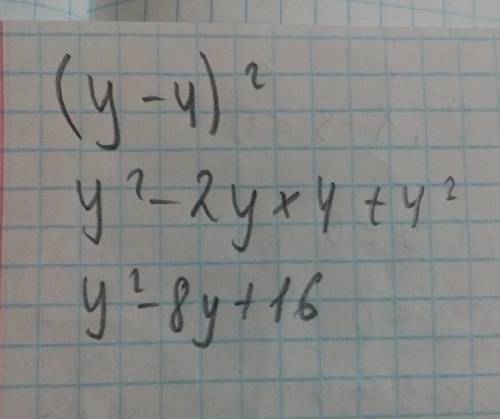 (y - 4)²
y² - 2y × 4 + 4²
y² - 8y + 16